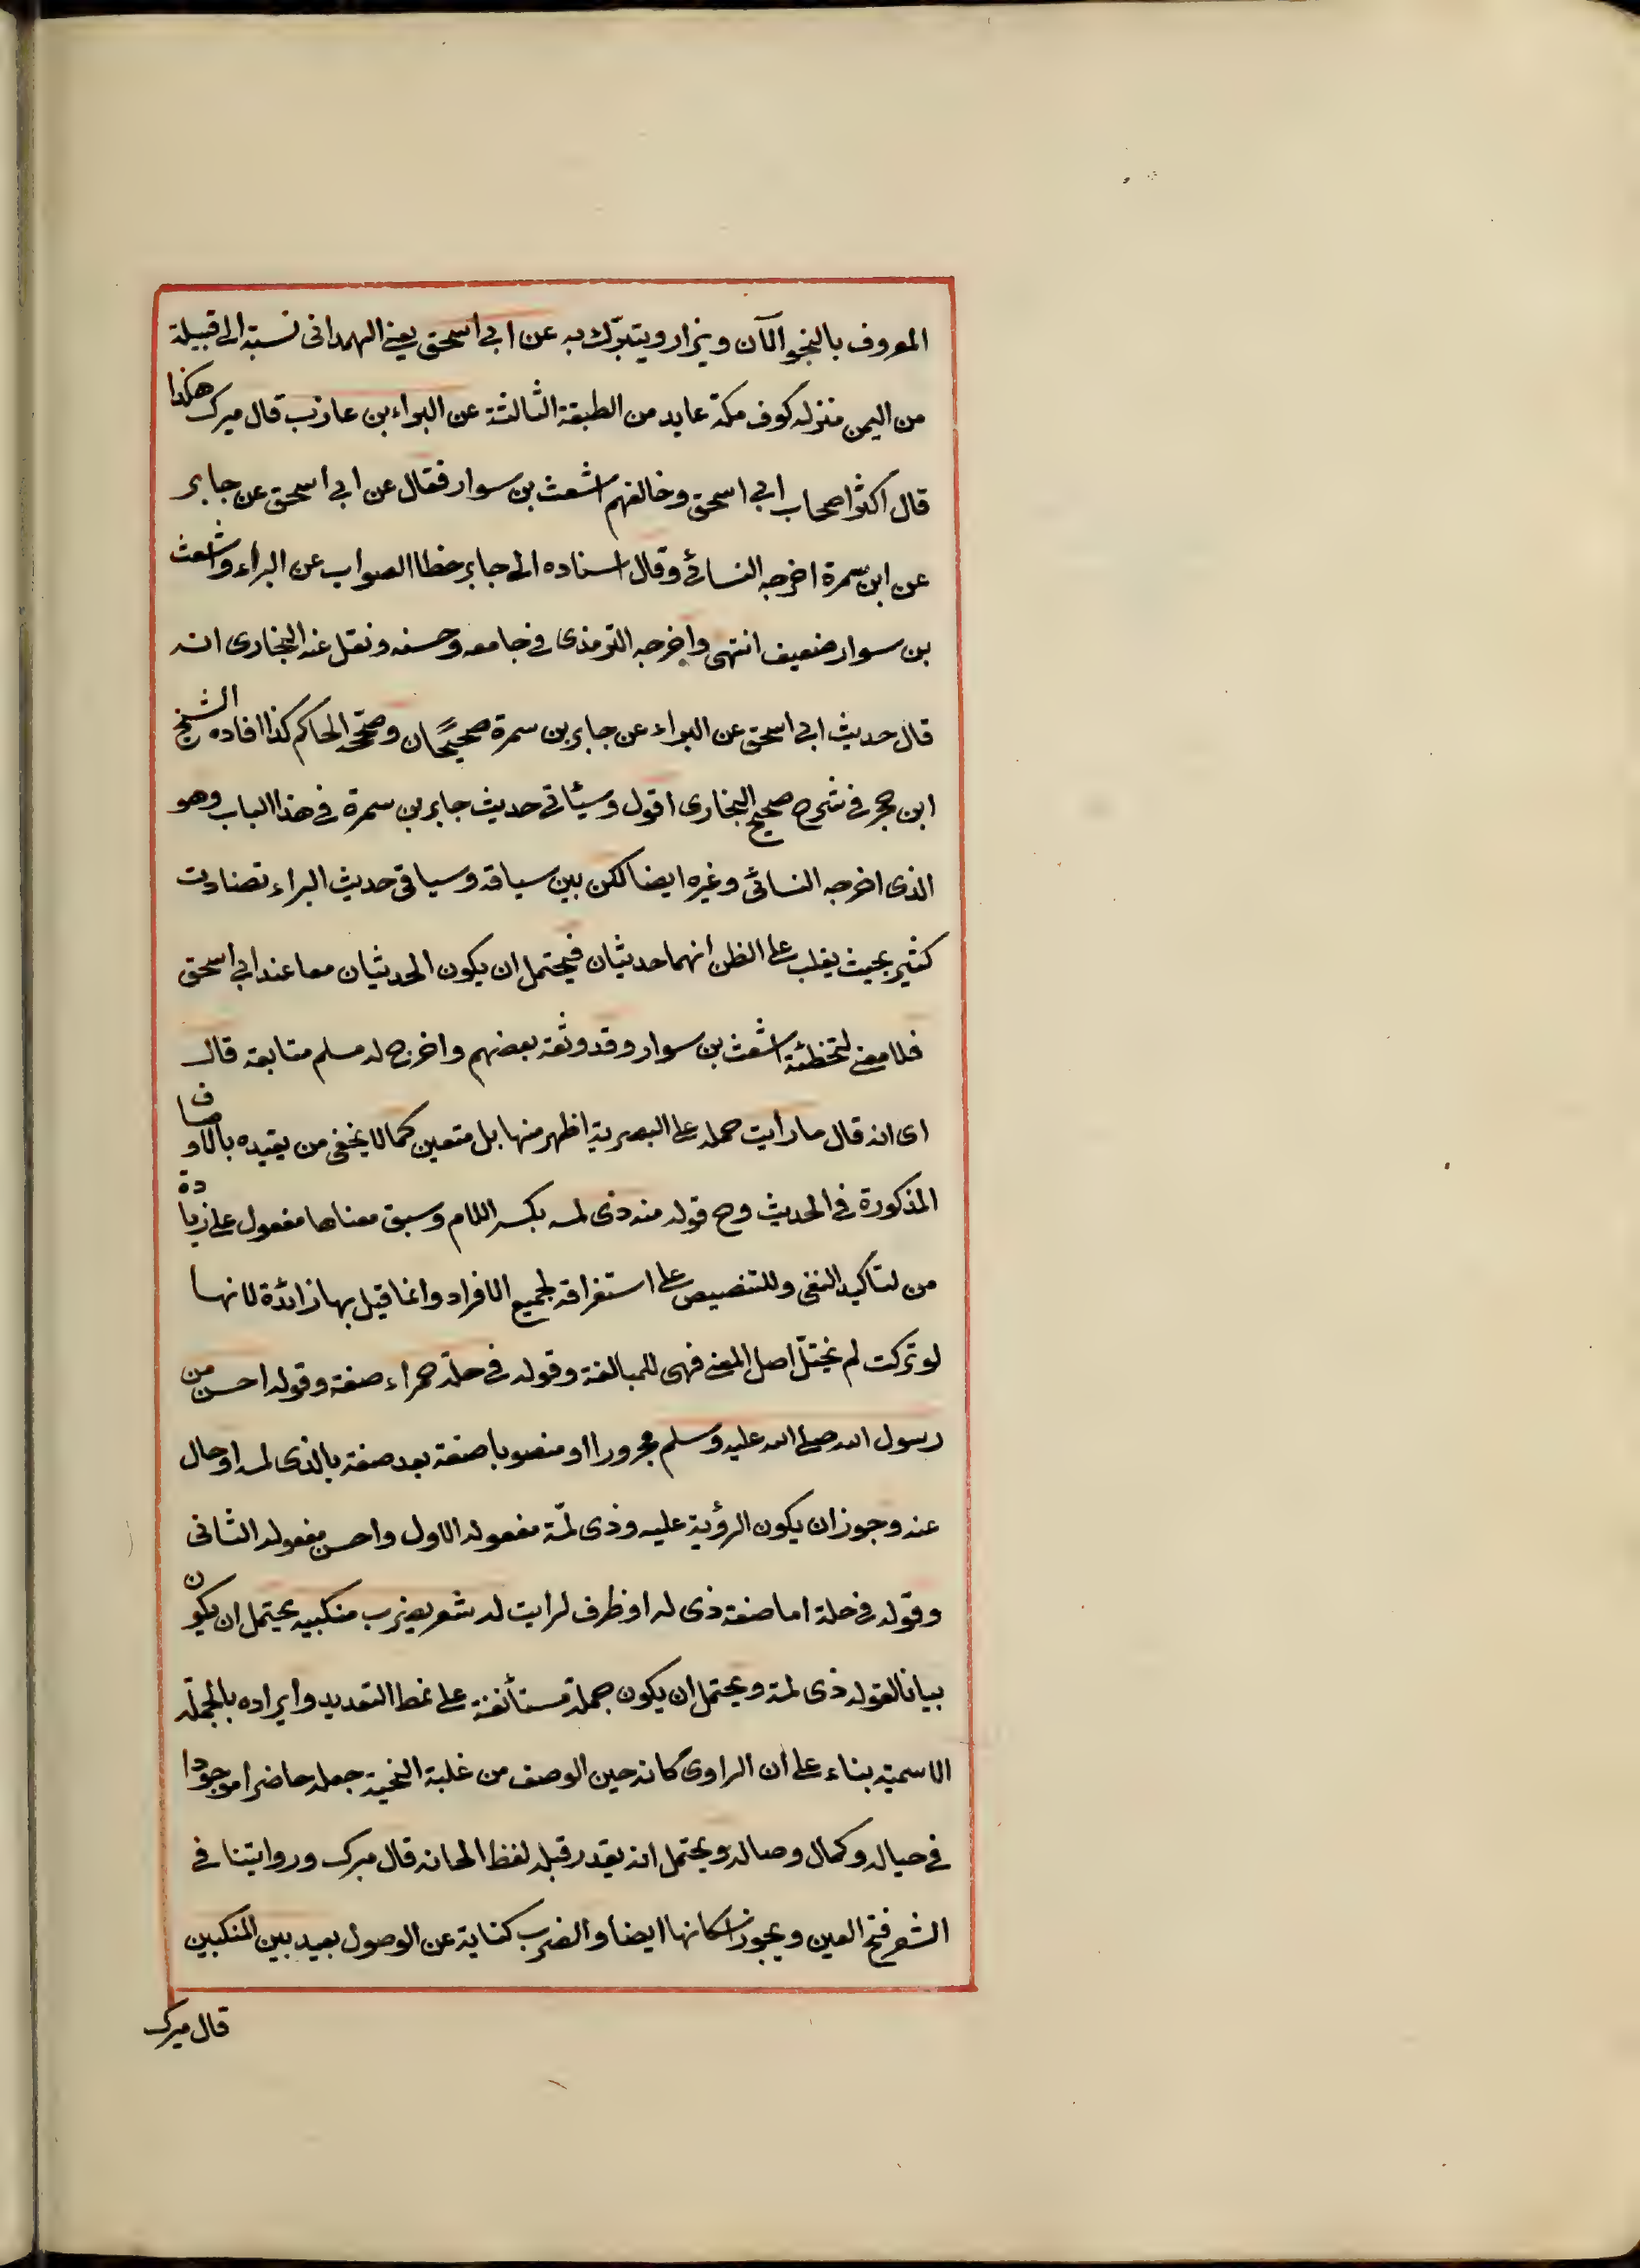 المعروف بالنجو الآن ويزار ويتبرّك به عن ابى اسحق يعنى الهمدانى نسبة الى قبيلة
من اليمن منزله كوف مكة عابد من الطبقة الثالثة عن البراء بن عازب قال ميرك هكذا
قال اكثر اصحاب ابى اسحق وخالفهم اشعث بن سوار فقال عن ابى اسحق عن جابر
عن ابن سمرة اخرجه النسائى وقال اسناده الى جابر خطا الصواب عن البراء واشعث
بن سوار ضعيف انتهى واخرجه الترمذى فى جامعه وحسنه ونقل عنه البخارى انه
قال حديث ابى اسحق عن البراء عن جابر بن سمرة صحيحان وصحّحه الحاكم كذا افاده الشيخ
ابن حجر فى شرح صحيح البخارى اقول وسيأتى حديث جابر بن سمرة فى هذا الباب وهو
الذى اخرجه النسائى وغيره ايضا لكن بين سياقه وسياق حديث البراء تضادت
كثير بحيث يغلب على الظن انهما حديثان فيحتمل ان يكون الحديثان معا عند ابى اسحق
فلا معنى لتخطئة اشعث بن سوار وقد وثقه بعضهم واخرج له مسلم متابعة قال
اى انه قال ما رايت حمله على البصرية اظهر منها بل متعين كما لا يخفى من يقيده بالاوصاف
المذكورة فى الحديث وح قوله منه ذى لمه بكسر اللام وسبق معناها مفعول على زيادة
من لتاكيد النفى وللتنصيص على استغراقه لجميع الافراد وانما قيل بها زائدة لانها
لو تركت لم يختلّ اصل المعنى فهى للمبالغة وقوله فى حلة حمراء صفة وقوله احسن من
رسول الله صلى الله عليه وسلم مجرورا او منصوبا صفة بعد صفة بالذى لمه او حال
عنه وجوز ان يكون الرؤية عليه وذى لمّة مفعوله الاول واحسن مفعوله الثانى
وقوله فى حلة اما صفة ذى له او ظرف لرايت له شعر يضرب منكبيه يحتمل ان يكون
بيانا لقوله ذى لمة ويحتمل ان يكون جملة مستأنفة على نمط التعديد وايراده بالجملة
الاسمية بناء على ان الراوى كانه حين الوصف من غلبة النحية جعله حاضرا موجودا
فى حياله وكمال وصاله ويحتمل انه يقدر قبله لفظ الحانه قال ميرك وروايتنا فى
الشعر فتح العين ويجوز اسكانها ايضا والضرب كناية عن الوصول بعيد بين المنكبين
قال ميرك